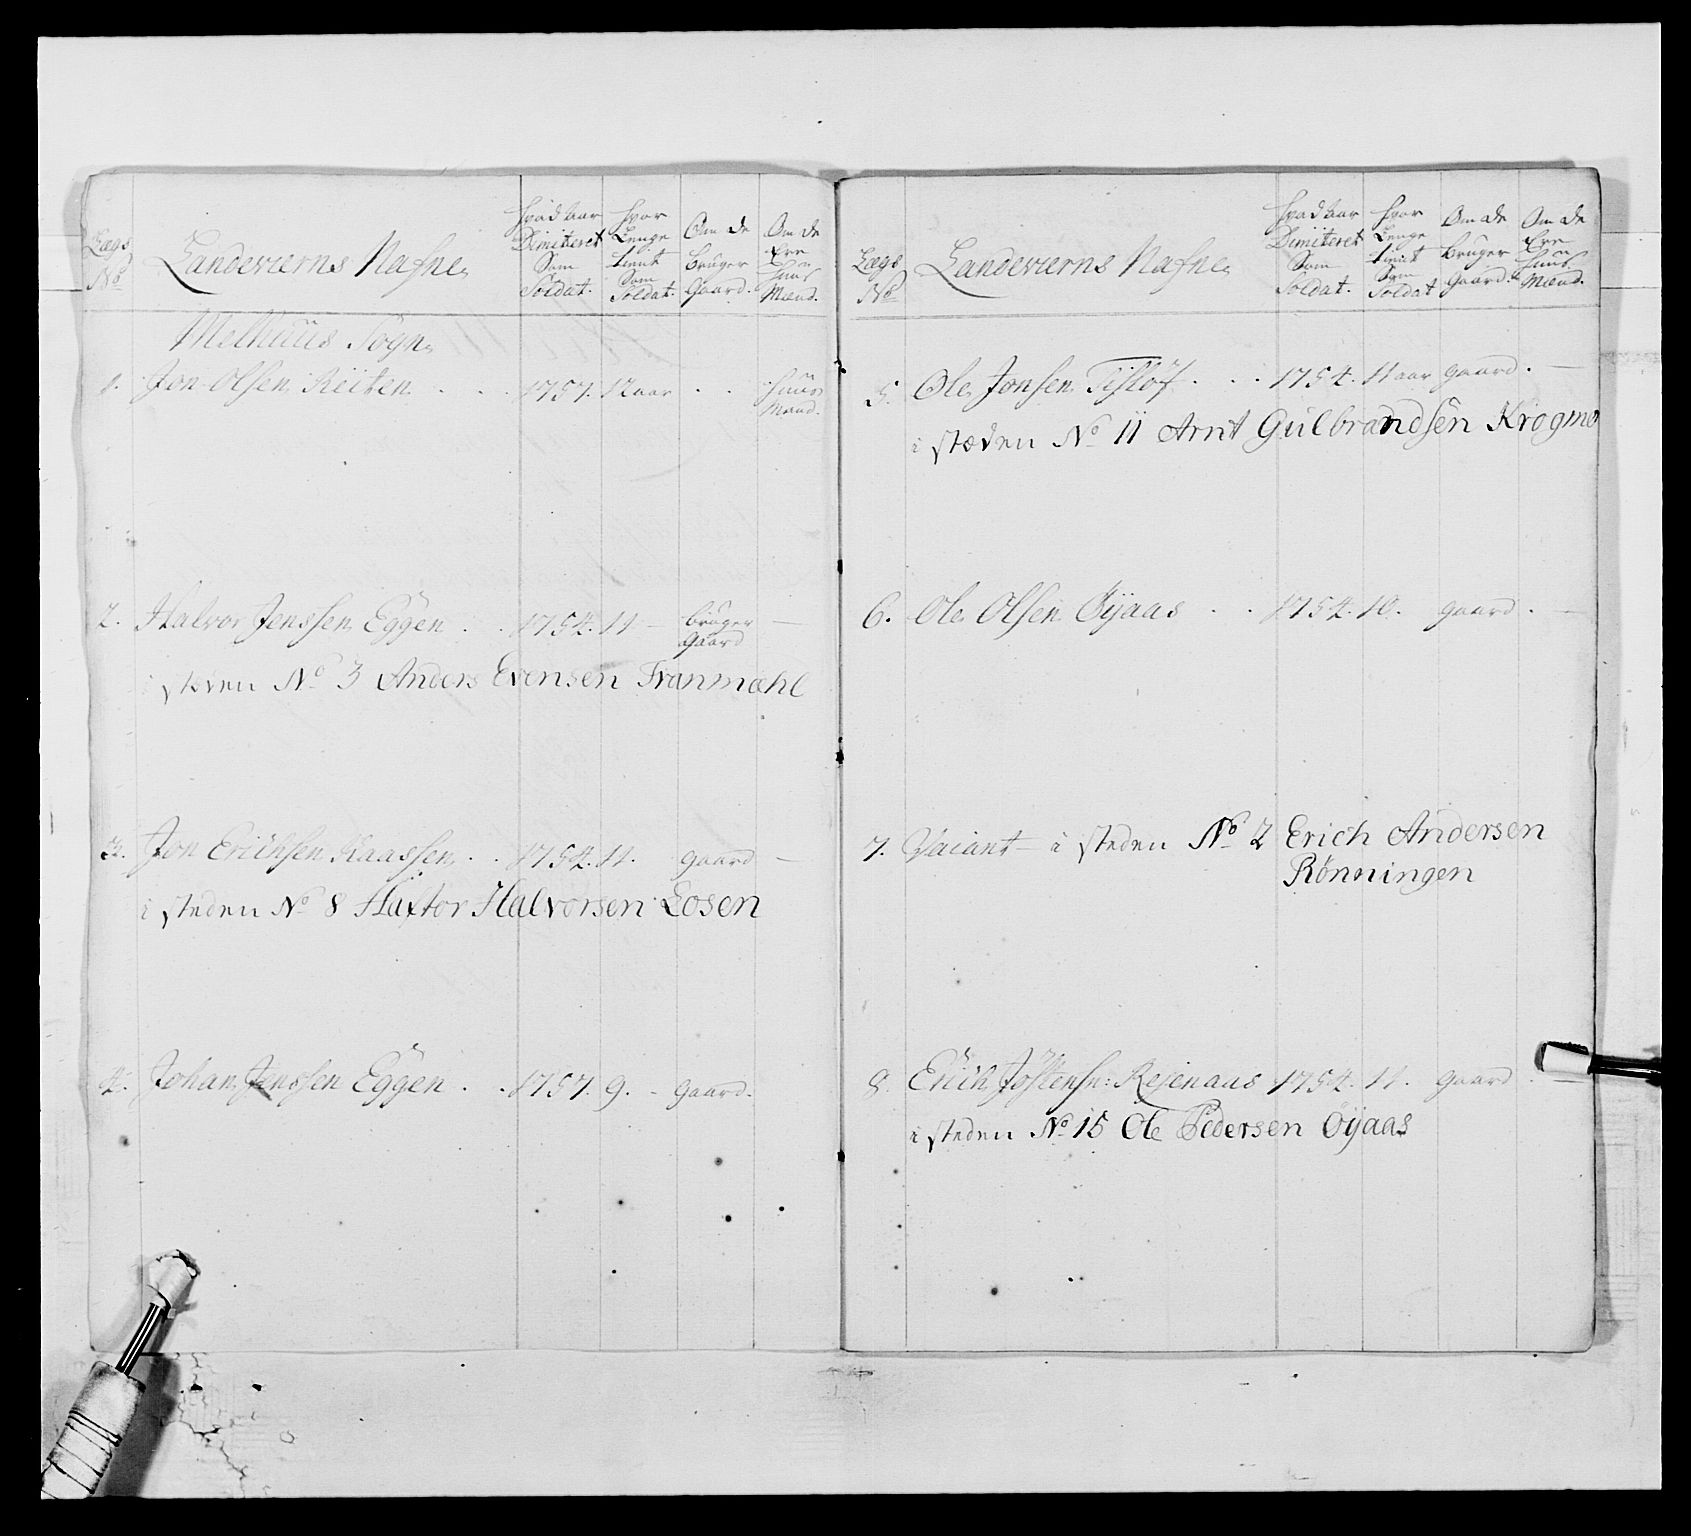 Lægs No
Landeværns Nafne
Hvad Aar Dimiteret Som Soldat.
Hvor Lenge tient Som Soldat.
Om de bruger Gaard.
Om de Ere Huus Mænd.
Melhuus Sogn
1. Jon Olsen Reiten . . . 1757. 12 aar . . huus Mand.
2. Halvor Jenssen Eggen . . 1754. 11 — bruger Gaard —
i steden No 3 Anders Evensen Tranmæhl
3. Jon Erichsen Kaassen . . 1754. 11. gaard —
i steden No 8 Haftor Halvorsen Losen
4. Johan Jenssen Eggen . . 1757. 9. - gaard.
Lægs No
Landeværns Nafne
Hvad Aar Dimiteret Som Soldat.
Hvor Lenge tient Som Soldat
Om de bruger Gaard.
Om de Ere Huus Mænd.
5. Ole Jonsen . . . 1754. 11 aar gaard . —
i stæden No 11 Arnt Gulbrandsen Krogmo
6. Ole Olsen Øyaas . . 1754. 10. gaard . —
7. Vacant — i steden No 2 Erich Andersen
Rønningen
8. Erich Jostensn: 1754. 11. gaard . —
i steden No 15 Ole Pedersen Øyaas